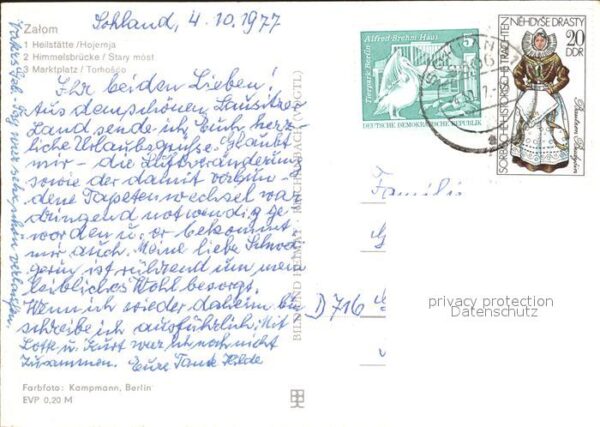 Załom
1 Heilstätte/Hojernja
2 Himmelsbrücke/Stary móst
3 Marktplatz/Torhośćo
Sohland, 4.10.1977
Ihr beiden Lieben!
Aus dem schönen Lausitzer
Land sende ich Euch herz-
liche Urlaubsgrüße. Glaubt
mir - die Luftveränderung
sowie der damit verbun-
dene Tapetenwechsel war
dringend notwendig ge-
worden u. er bekommt
mir auch. Meine liebe Schwä-
gerin ist rührend um mein
leibliches Wohl besorgt.
Wenn ich wieder daheim bin
schreibe ich ausführlich. Mit
Lotte u. Kurt war ich noch nicht
zusammen. Eure Tante Hilde
Farbfoto: Kampmann, Berlin
EVP 0,20 M
BILD UND HEIMAT REICHENBACH (VOGTL)
Alfred-Brehm-Haus
5
Tierpark Berlin
DEUTSCHE DEMOKRATISCHE REPUBLIK
NĚHDYŠE DRASTY
20
DDR
SORBISCHE HISTORISCHE TRACHTEN
Bautzen Budyšin
Familie
D 716
privacy protection
Datenschutz